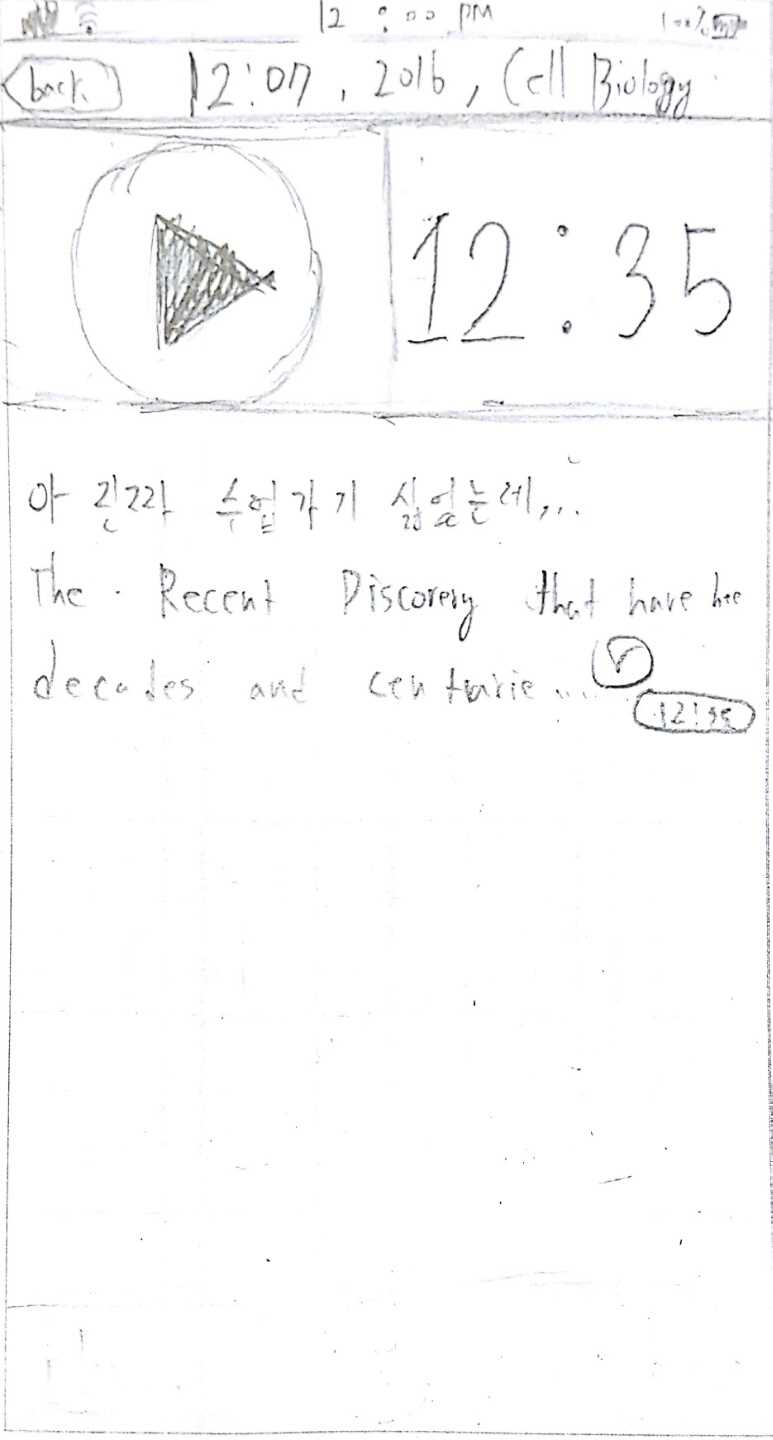 12:00 PM 100%
back 12:07, 2016, Cell Biology
12:35
아 진짜 수업가기 싫었는데,...
The Recent Discovery that have
decades and centurie...